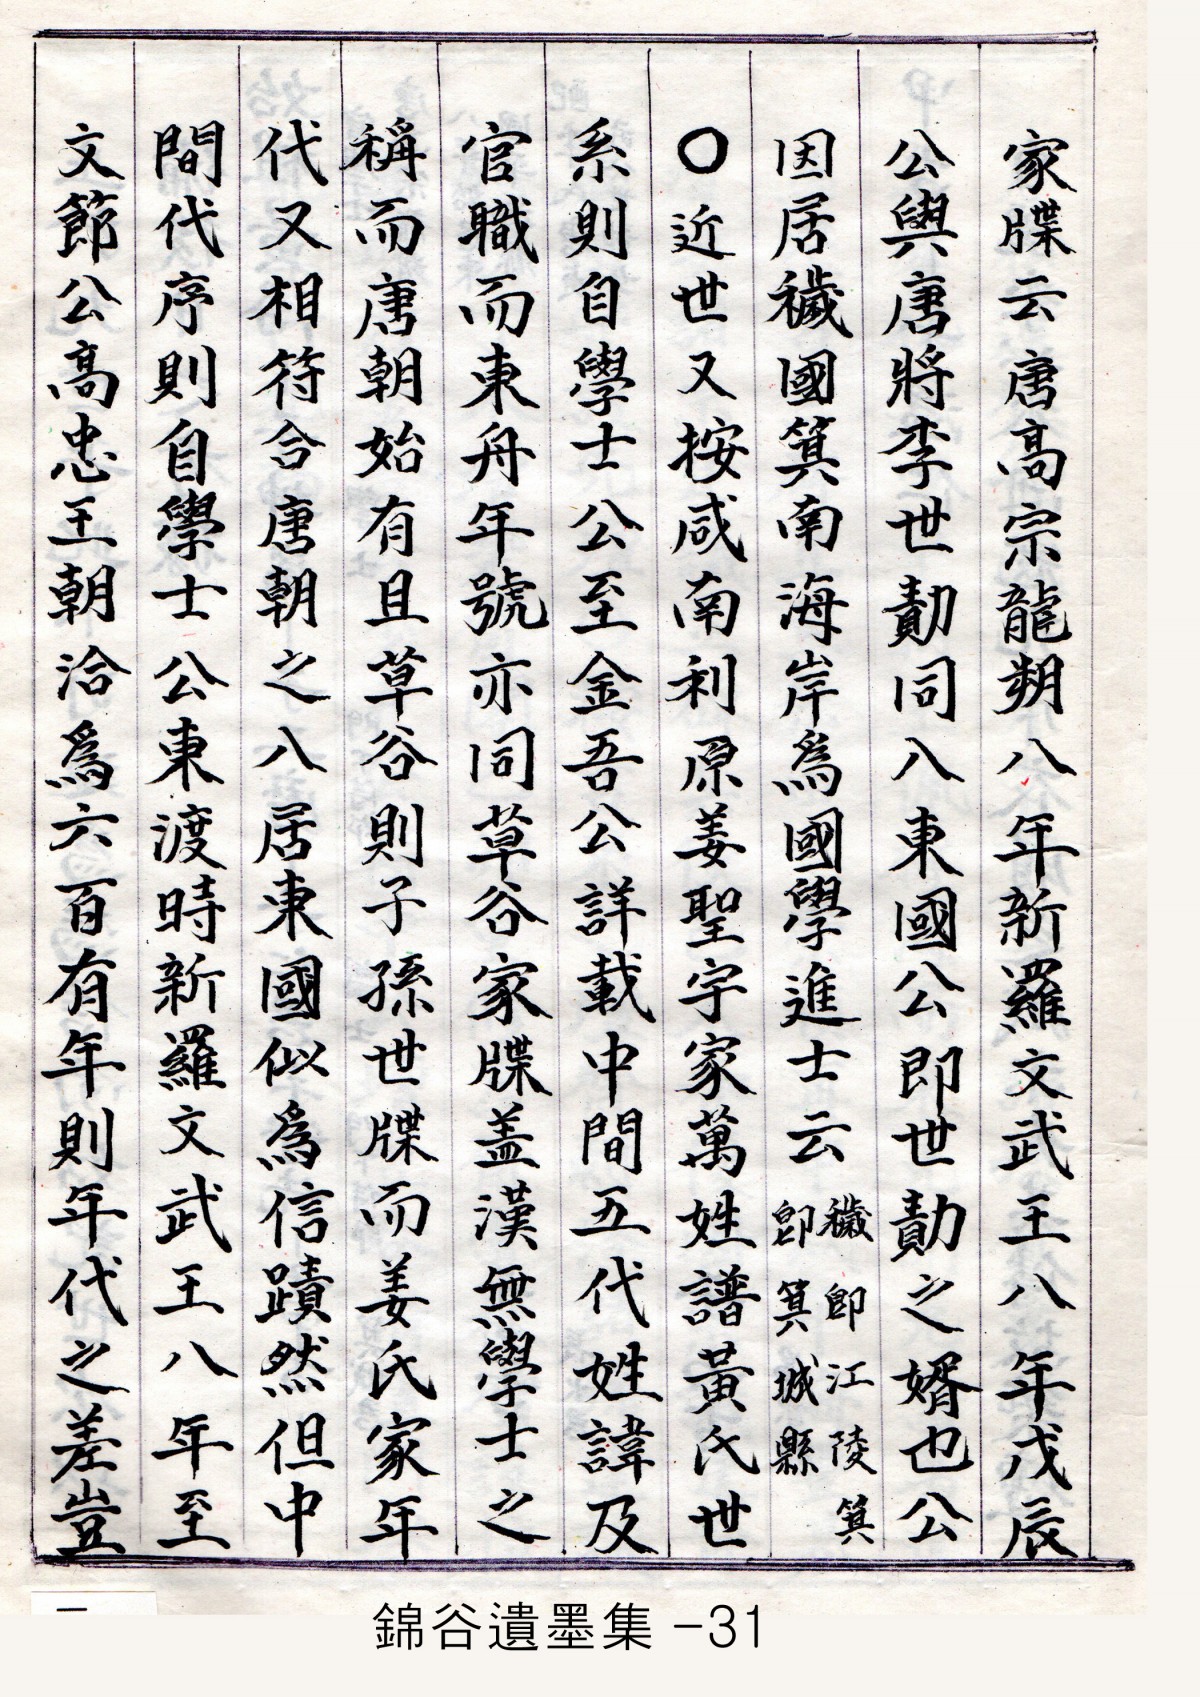 家牒云唐高宗龍朔八年新羅文武王八年戊辰
公與唐將李世勣同入東國公即世勣之婿也公
因居穢國箕南海岸爲國學進士云穢卽江陵箕卽箕城縣
〇近世又按咸南利原姜聖宇家萬姓譜黃氏世
系則自學士公至金吾公詳載中間五代姓諱及
官職而東舟年號亦同草谷家牒盖漢無學士之
稱而唐朝始有且草谷則子孫世牒而姜氏家年
代又相符合唐朝之入居東國似爲信蹟然但中
間代序則自學士公東渡時新羅文武王八年至
文節公高忠王朝洽爲六百有年則年代之差豈
錦谷遺墨集 -31